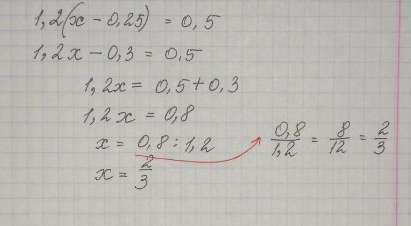 1,2(x - 0,25) = 0,5
1,2x - 0,3 = 0,5
1,2x = 0,5 + 0,3
1,2x = 0,8
x = 0,8 : 1,2
0,8/1,2 = 8/12 = 2/3
x = 2/3